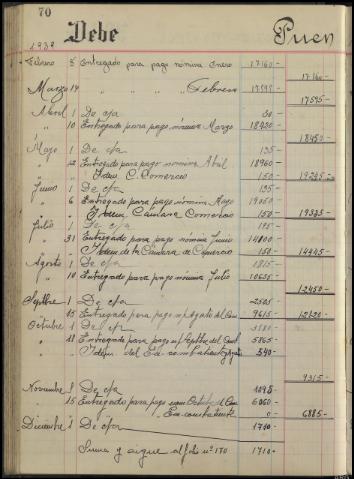 70
Debe Puen
1939
Febrero 5 Entregado para pago nómina Enero 17160-
17160-
Marzo 14 " " " " Febrero 17595-
17595-
Abril 1 De c/a 30-
" 10 Entregado para pago nómina Marzo 18420-
18450-
Mayo 1 De c/a 135-
" 12 Entregado para pago nómina Abril 18960-
" Idem C. Comercio 150-
Junio 1 De c/a 135-
" 6 Entregado para pago nómina Mayo
" Idem Cámara Comercio 150- 19335-
Julio 1 De c/a
" 31 Entregado para pago nómina Junio 14800-
" Idem de la Cámara de Comercio 150- 14945-
Agosto 1 De c/a
" 10 Entregado para pago nómina Julio 10635-
12450-
Sepbre 1 De c/a 2505-
" 15 Entregado para pago Agosto 9615- 12120-
Octubre 1 De c/a
" 11 Entregado para pago Sepbre 5865-
" Idem del Ex-combatiente 540-
9315-
Noviembre 1 De c/a
" 15 Entregado para pago Octubre 6060-
" Ex-combatiente 0- 6885-
Diciembre 1 De c/a 1710-
Suma y sigue al folio nº 170 1710-